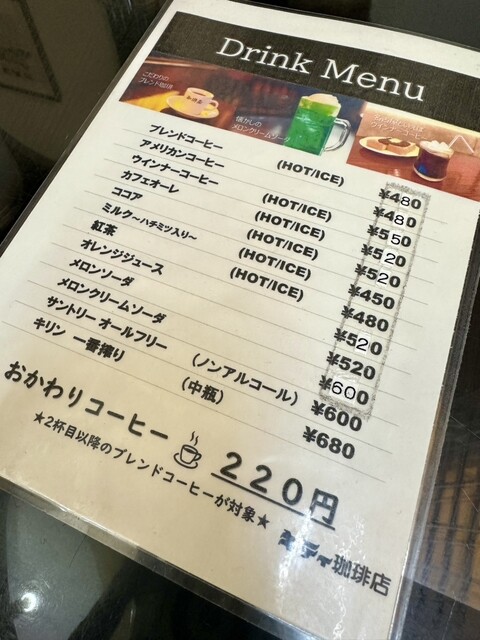 Drink Menu
こだわりの
ブレンド珈琲
懐かしの
メロンクリームソーダ
ウインナーコーヒー
ブレンドコーヒー (HOT/ICE) ¥480
アメリカンコーヒー ¥480
ウインナーコーヒー (HOT/ICE) ¥550
カフェオーレ (HOT/ICE) ¥520
ココア (HOT/ICE) ¥520
ミルク~ハチミツ入り~ (HOT/ICE) ¥450
紅茶 (HOT/ICE) ¥480
オレンジジュース ¥520
メロンソーダ ¥520
メロンクリームソーダ ¥600
サントリー オールフリー (ノンアルコール) ¥600
キリン 一番搾り (中瓶) ¥680
おかわりコーヒー 220円
★2杯目以降のブレンドコーヒーが対象★
珈琲店